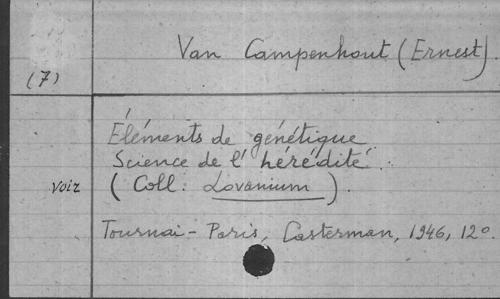 Van Campenhout (Ernest).
(7)
Éléments de génétique
Science de l'hérédité.
voir (Coll: Lovanium).
Tournai-Paris, Casterman, 1946, 12º.